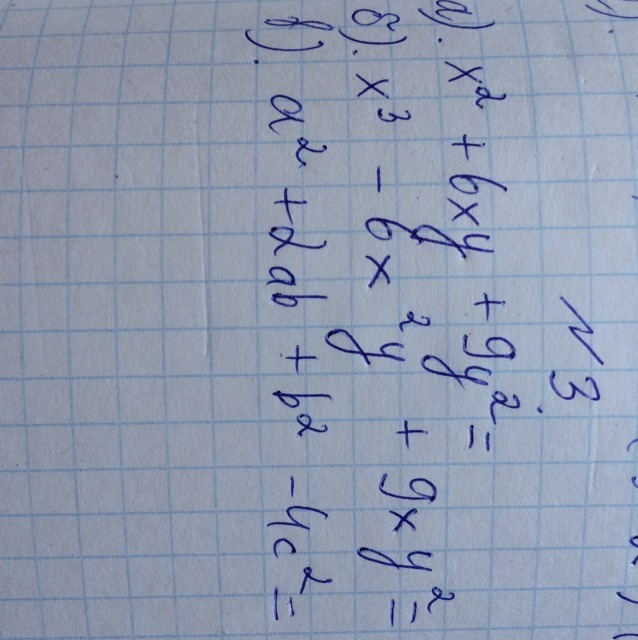 №3.
а). x² + 6xy + 9y² =
б). x³ - 6x²y + 9xy² =
в). a² + 2ab + b² - 4c² =